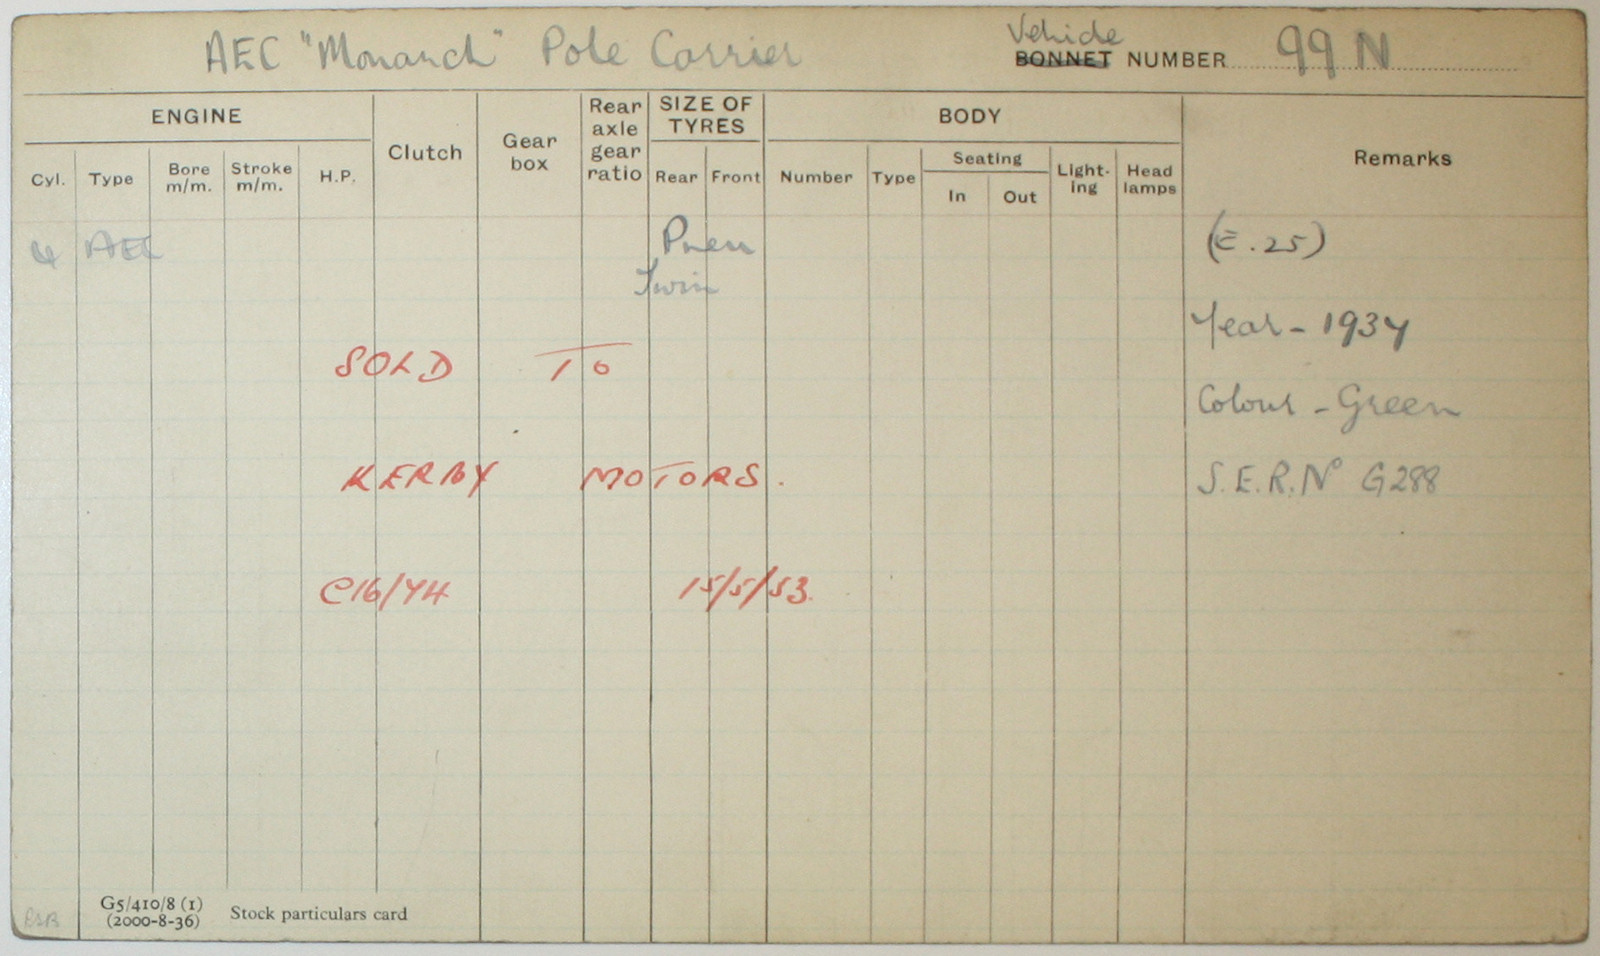 AEC "Monarch" Pole Carrier
Vehicle
BONNET NUMBER 99 N
ENGINE
Clutch
Gear box
Rear axle gear ratio
SIZE OF TYRES
BODY
Remarks
Cyl. Type Bore m/m. Stroke m/m. H.P.
Rear Front
Number Type
Seating
In Out
Light-ing
Head lamps
4 AEC Pneu (E.25)
Twin
Year - 1934
SOLD TO
Colour - Green
KERBY MOTORS. S.E.R. No G288
C16/44 15/5/53.
G5/410/8 (1)
(2000-8-36)
Stock particulars card